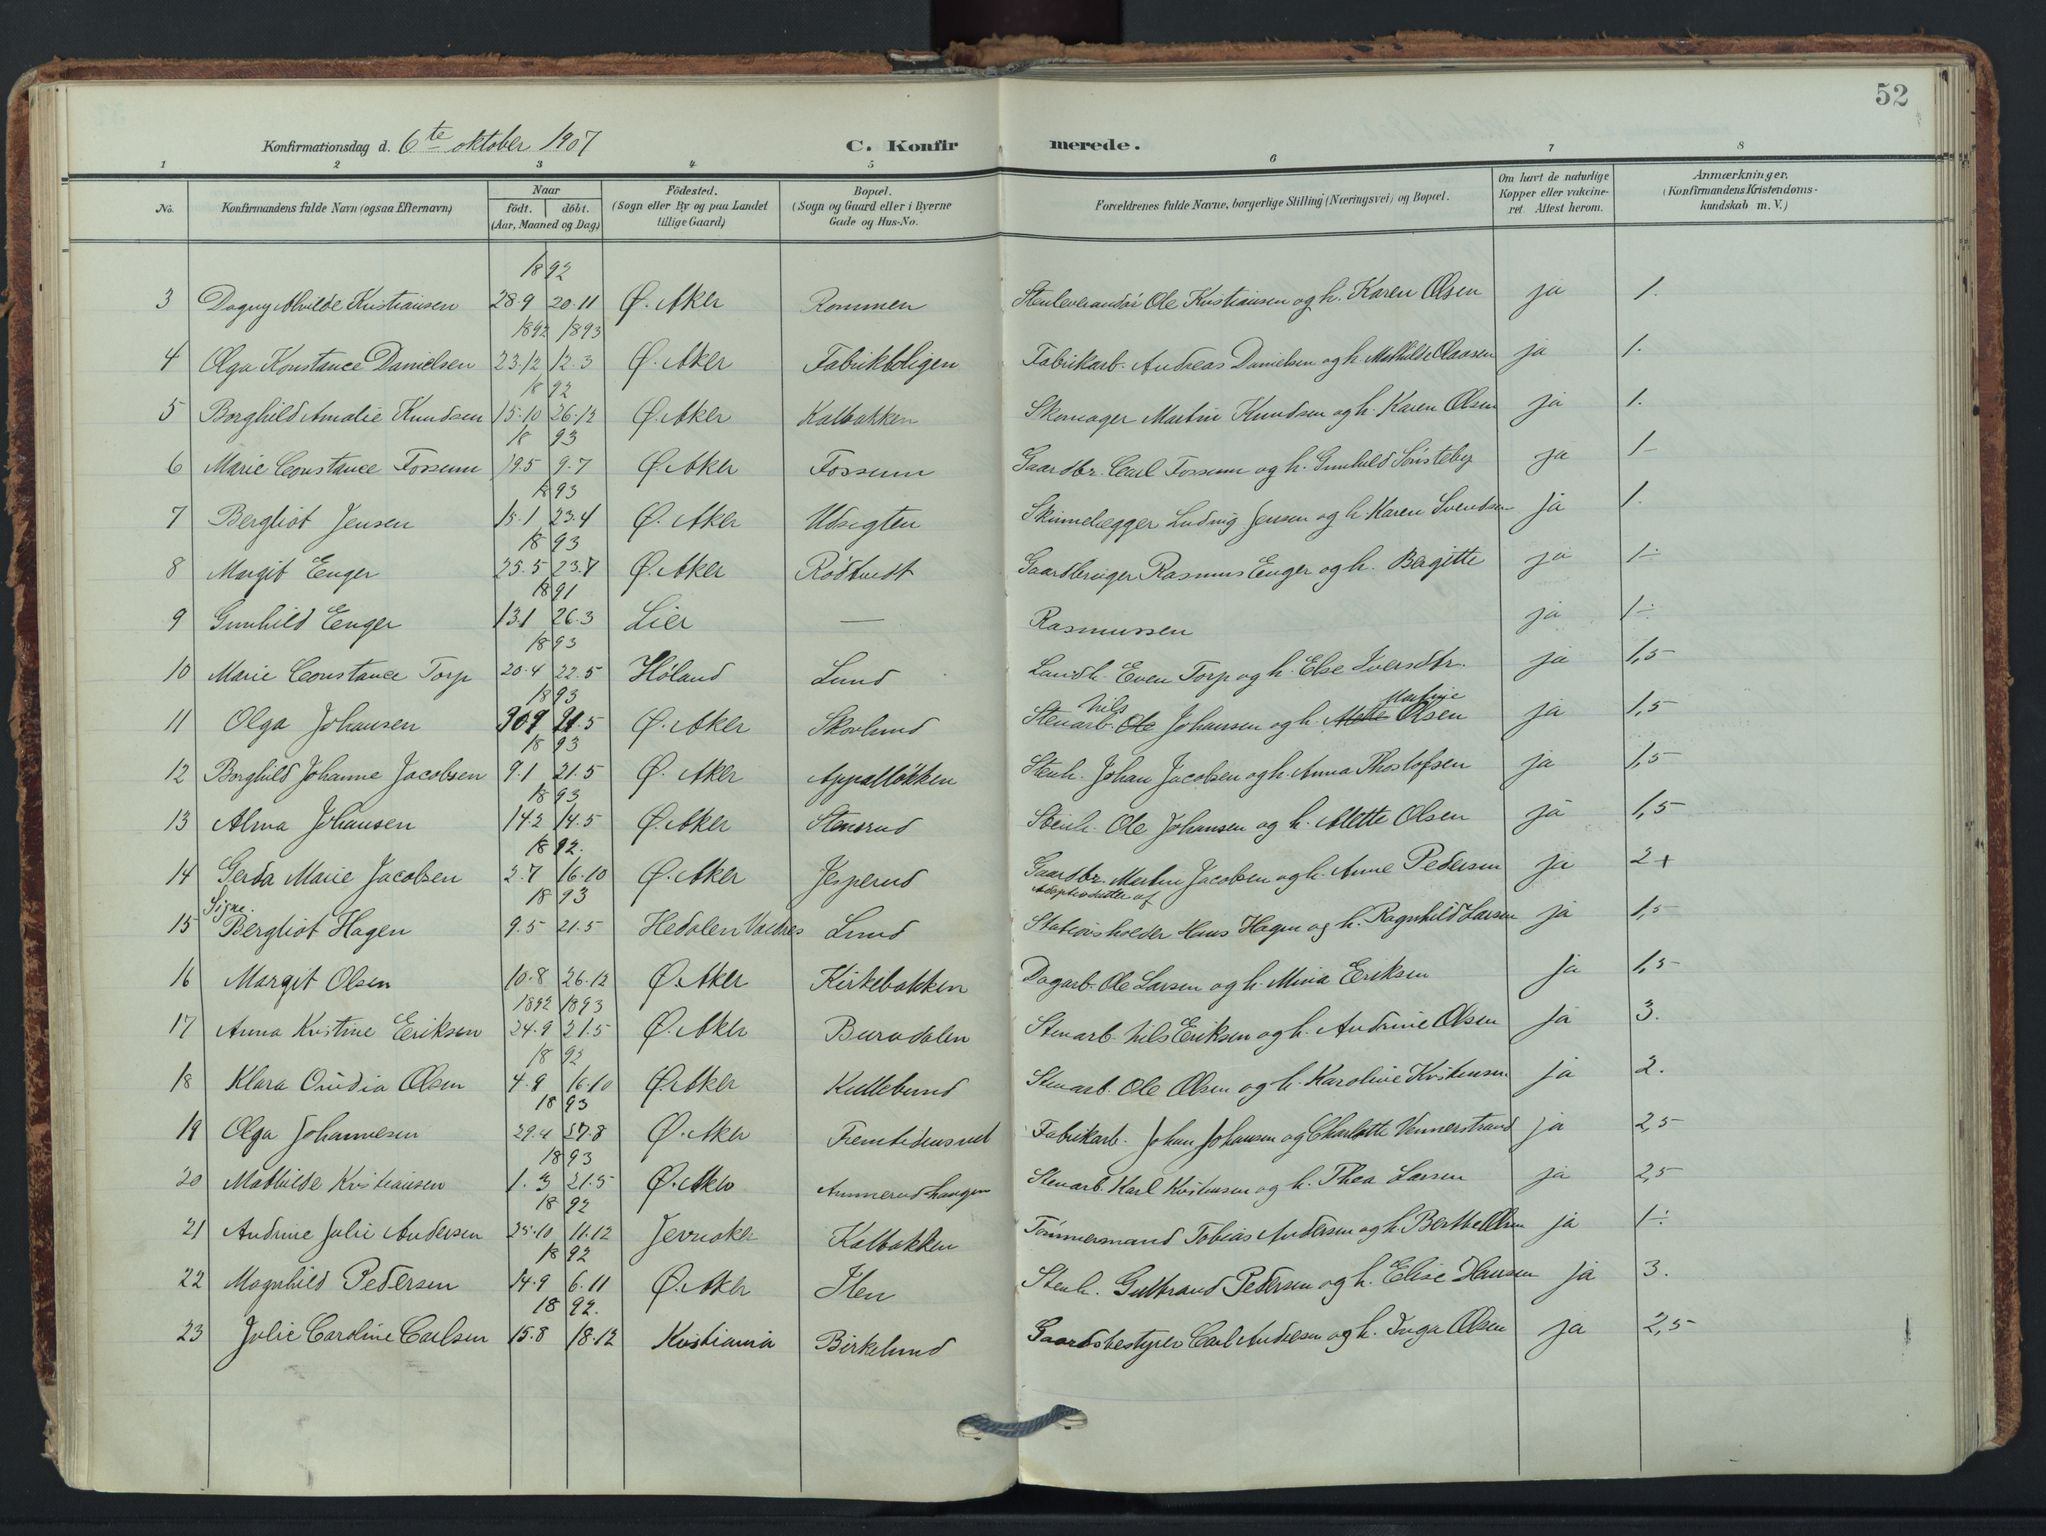 52
Konfirmationsdag d. 6te oktober 1907 C. Konfirmerede.
1 2 3 4 5 6 7 8
No. Konfirmandens fulde Navn (ogsaa Efternavn) Naar født. døbt. (Aar, Maaned og Dag) Fødested. (Sogn eller By og paa Landet tillige Gaard) Bopæl. (Sogn og Gaard eller i Byerne Gade og Hus-No. Forældrenes fulde Navne, borgerlige Stilling (Næringsvei) og Bopæl. Om havt de naturlige Kopper eller vakcineret. Attest herom. Anmærkninger. (Konfirmandens Kristendomskundskab m. V.)
1892
3 Dagny Alvilde Kristiansen 28.9 20.11 Ø. Aker Rommen Stenleverandør Ole Kristiansen og h. Karen Olsen ja 1.
1892 1893
4 Olga Konstance Danielsen 23.12 12.3 Ø. Aker Fabrikboligen Fabrikarb. Andreas Danielsen og h. Mathilde Olaasen ja 1.
1892
5 Borghild Amalie Knudsen 15.10 26.12 Ø. Aker Kalbakken Skomager Martin Knudsen og h. Karen Olsen ja 1.
1893
6 Marie Constance Fossum 19.5 9.7 Ø. Aker Fossum Gaardbr. Carl Fossum og h. Gunhild Sønsteby ja 1-
1893
7 Bergliot Jensen 15.1 23.4 Ø. Aker Udsigten Skinnelægger Ludvig Jensen og h. Karen Svendsen ja 1.
1893
8 Margit Enger 25.5 23.7 Ø. Aker Rødtvedt Gaardbruger Rasmus Enger og h. Bergitte ja 1÷
1891
9 Gunhild Enger 13.1 26.3 Lier — Rasmussen ja 1÷
1893
10 Marie Constance Torp 20.4 22.5 Høland Lund Landh. Even Torp og h. Else Iversdtr. ja 1,5
1893 Nils Martine
11 Olga Johansen 21.5 Ø. Aker Skovlund Stenarb. Ole Johansen og h. Olsen ja 1,5
1893
12 Borghild Johanne Jacobsen 9.1 21.5 Ø. Aker Appalløkken Stenh. Johan Jacobsen og h. Anna Thoslofsen ja 1,5
1893
13 Alma Johansen 14.2 14.5 Ø. Aker Stensrud Stenh. Ole Johansen og h. Alette Olsen ja 1,5
1892.
14 Gerda Marie Jacobsen 2.7 16.10 Ø. Aker Jesperud Gaardbr. Martin Jacobsen og h. Anne Pedersen ja 2+
Signe. 1893 Adoptivdatter af
15 Bergliot Hagen 9.5 21.5 Hedalen Valdres Lund Stationsholder Hans Hagen og h. Ragnhild Larsen ja 1,5
16 Margit Olsen 10.8 26.12 Ø. Aker Kirkebakken Dagarb. Ole Larsen og h. Mina Eriksen ja 1,5
1892 1893
17 Anna Kristine Eriksen 24.9 21.5 Ø. Aker Buradalen Stenarb. Nils Eriksen og h. Andrine Olsen ja 3.
1892
18 Klara Ovidia Olsen 4.9 16.10 Ø. Aker Kullebund Stenarb. Ole Olsen og h. Karoline Kristensen ja 2.
1893
19 Olga Johannesen 29.4 27.8 Ø. Aker Fremtidensvei Fabrikarb. Johan Johansen og Charlotte Vennerstrand ja 2,5
1893
20 Mathilde Kristiansen 1.3 21.5 Ø. Aker Ammerudhaugen Stenarb. Karl Kristensen og h. Thea Larsen ja 2,5
1892
21 Andrine Julie Andersen 25.10 11.12 Jevnaker Kalbakken Tømmermand Tobias Andersen og h. Berthe Olsen ja 1÷
1892
22 Magnhild Pedersen 14.9 6.11 Ø. Aker Hen Stenh. Gulbrand Pedersen og h. Elise Hansen ja 3.
1892.
23 Julie Caroline Carlsen 15.8 18.12 Kristiania Birkelund Gaardsbestyrer Carl Andersen og h. Inga Olsen ja 2,5